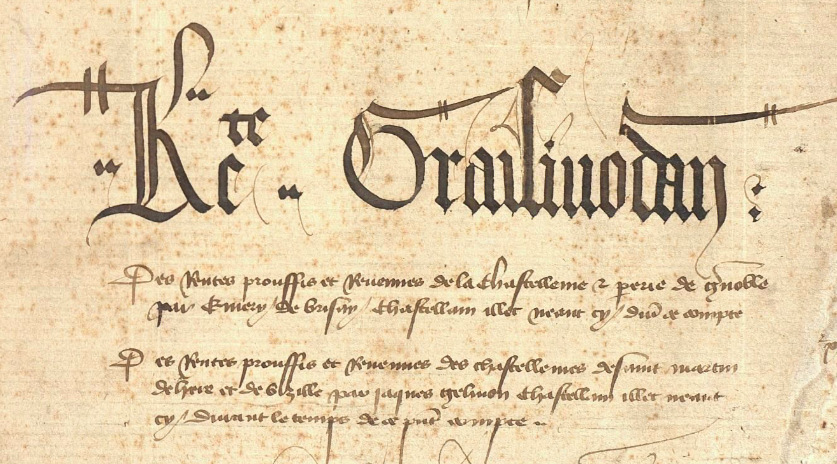 Rcte Graisivodan :
Des Rentes prouffis et Revennes de la chastellenie & perie de gnoble
par Emery de brisay chastellain illec neant cy / dut ce compte
Des Rentes prouffis et Revennes des chastellenies de saint martin
de here et de vizille par Jaques gelinon chastellain illec neant
cy / durant le temps de ce put compte ..